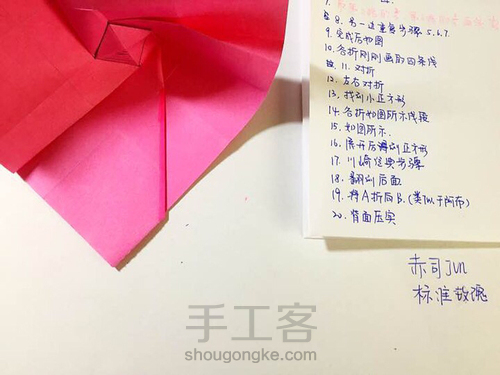 8. 另一边重复步骤 5.6.7.
9. 完成后如图
10. 各折刚刚画的四条线
11. 对折
12. 左右对折
13. 找到小正方形
14. 各折如图所示线段
15. 如图所示.
16. 展开后得到正方形
17. 川崎经典步骤
18. 翻到后面
19. 将A折向B.(类似于阿布)
20. 背面压实
赤司Jun
标准玫瑰
手工客
shougongke.com